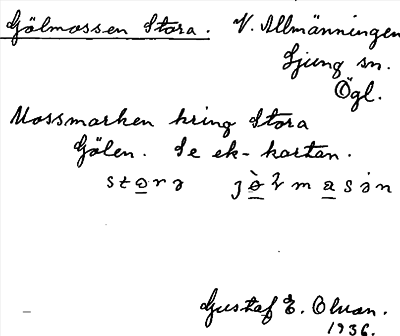 Gölmossen Stora. V. Allmänningen
Ljung sn.
Ögl.
Mossmarken kring Stora
Gölen. Se ek-kartan.
Gustaf E. Olsson.
1936.